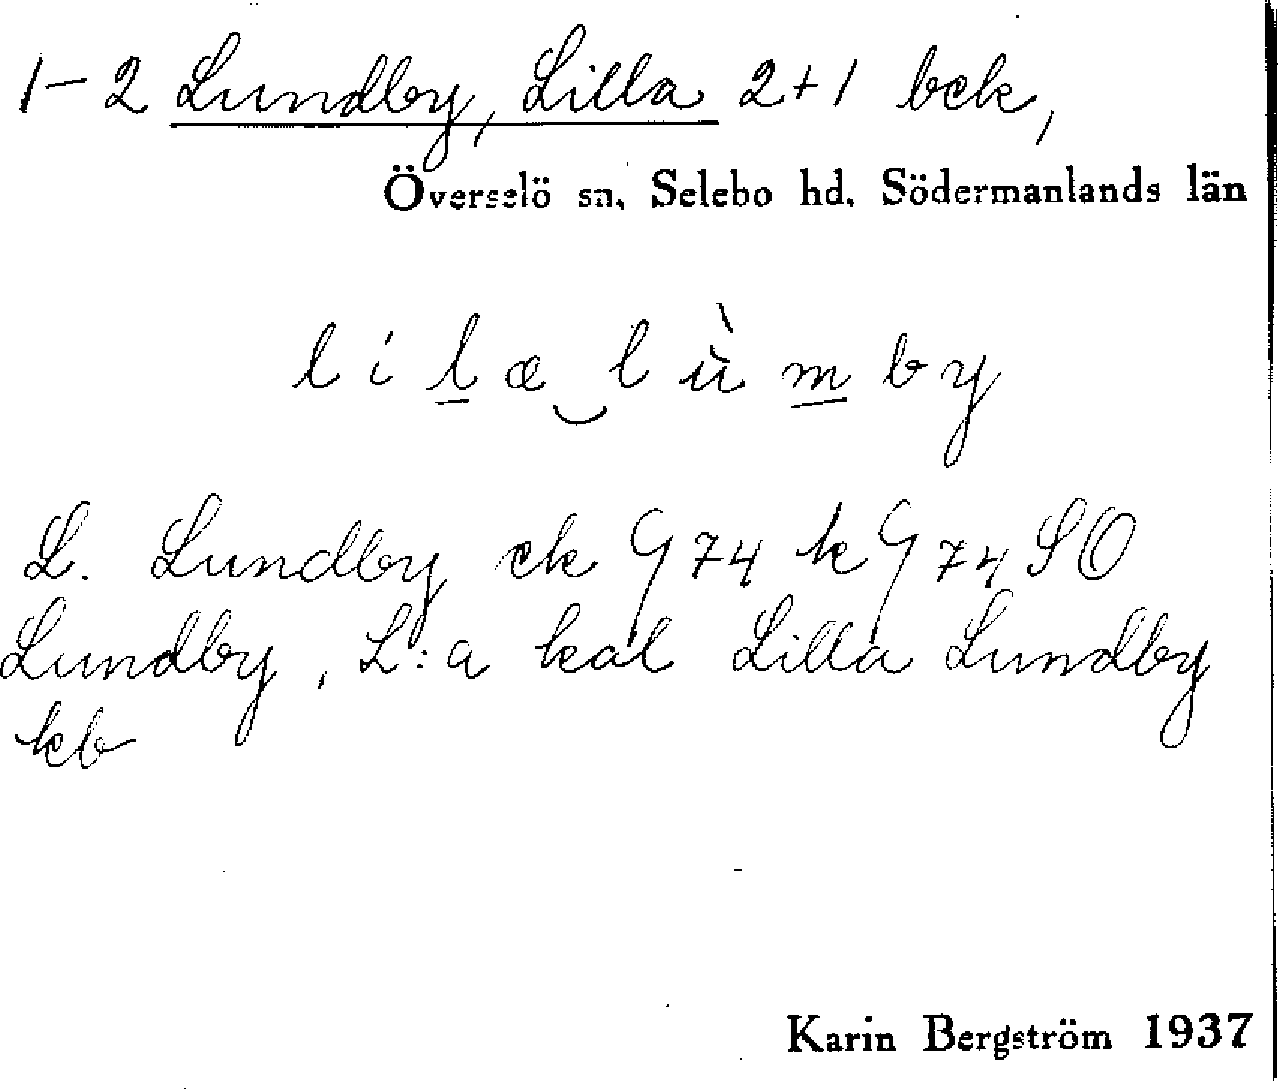 1-2 Lundby, Lilla 2+1 bek,
Överselö sn, Selebo hd, Södermanlands län
lilæ‿lùmby
L. Lundby ek G 74 k G 74 SO
Lundby, L:a kal Lilla Lundby
kb
Karin Bergström 1937